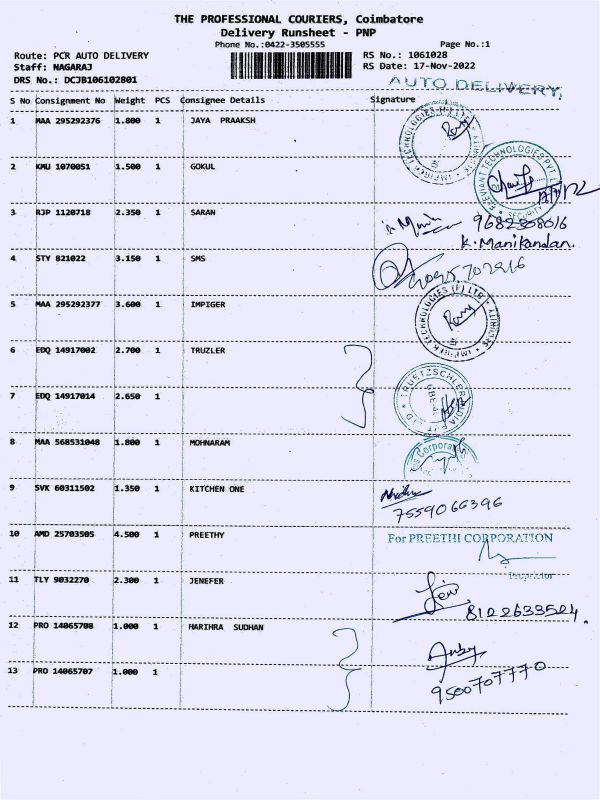 THE PROFESSIONAL COURIERS, Coimbatore
Delivery Runsheet - PNP
Phone No.:0422-3505555
Page No.:1
Route: PCR AUTO DELIVERY
RS No.: 1061028
Staff: NAGARAJ
RS Date: 17-Nov-2022
DRS No.: DCJB106102801
AUTO DELIVERY
S No Consignment No Weight PCS Consignee Details Signature
1 MAA 295292376 1.800 1 JAYA PRAAKSH
2 KMU 1070051 1.500 1 GOKUL
SECURITY
3 RJP 1120718 2.350 1 SARAN
9682308016
K. Manikandan.
4 STY 821022 3.150 1 SMS
5 MAA 295292377 3.600 1 IMPIGER
TECHNOLOGIES (P) LTD
6 EDQ 14917002 2.700 1 TRUZLER
7 EDQ 14917014 2.650 1
8 MAA 568531048 1.800 1 MOHNARAM
9 SVK 60311502 1.350 1 KITCHEN ONE
7559066396
10 AMD 25703505 4.500 1 PREETHY
For PREETHI CORPORATION
Proprietor
11 TLY 9032270 2.300 1 JENEFER
8122633524.
12 PRO 14065708 1.000 1 HARIHRA SUDHAN
13 PRO 14065707 1.000 1
9500707770